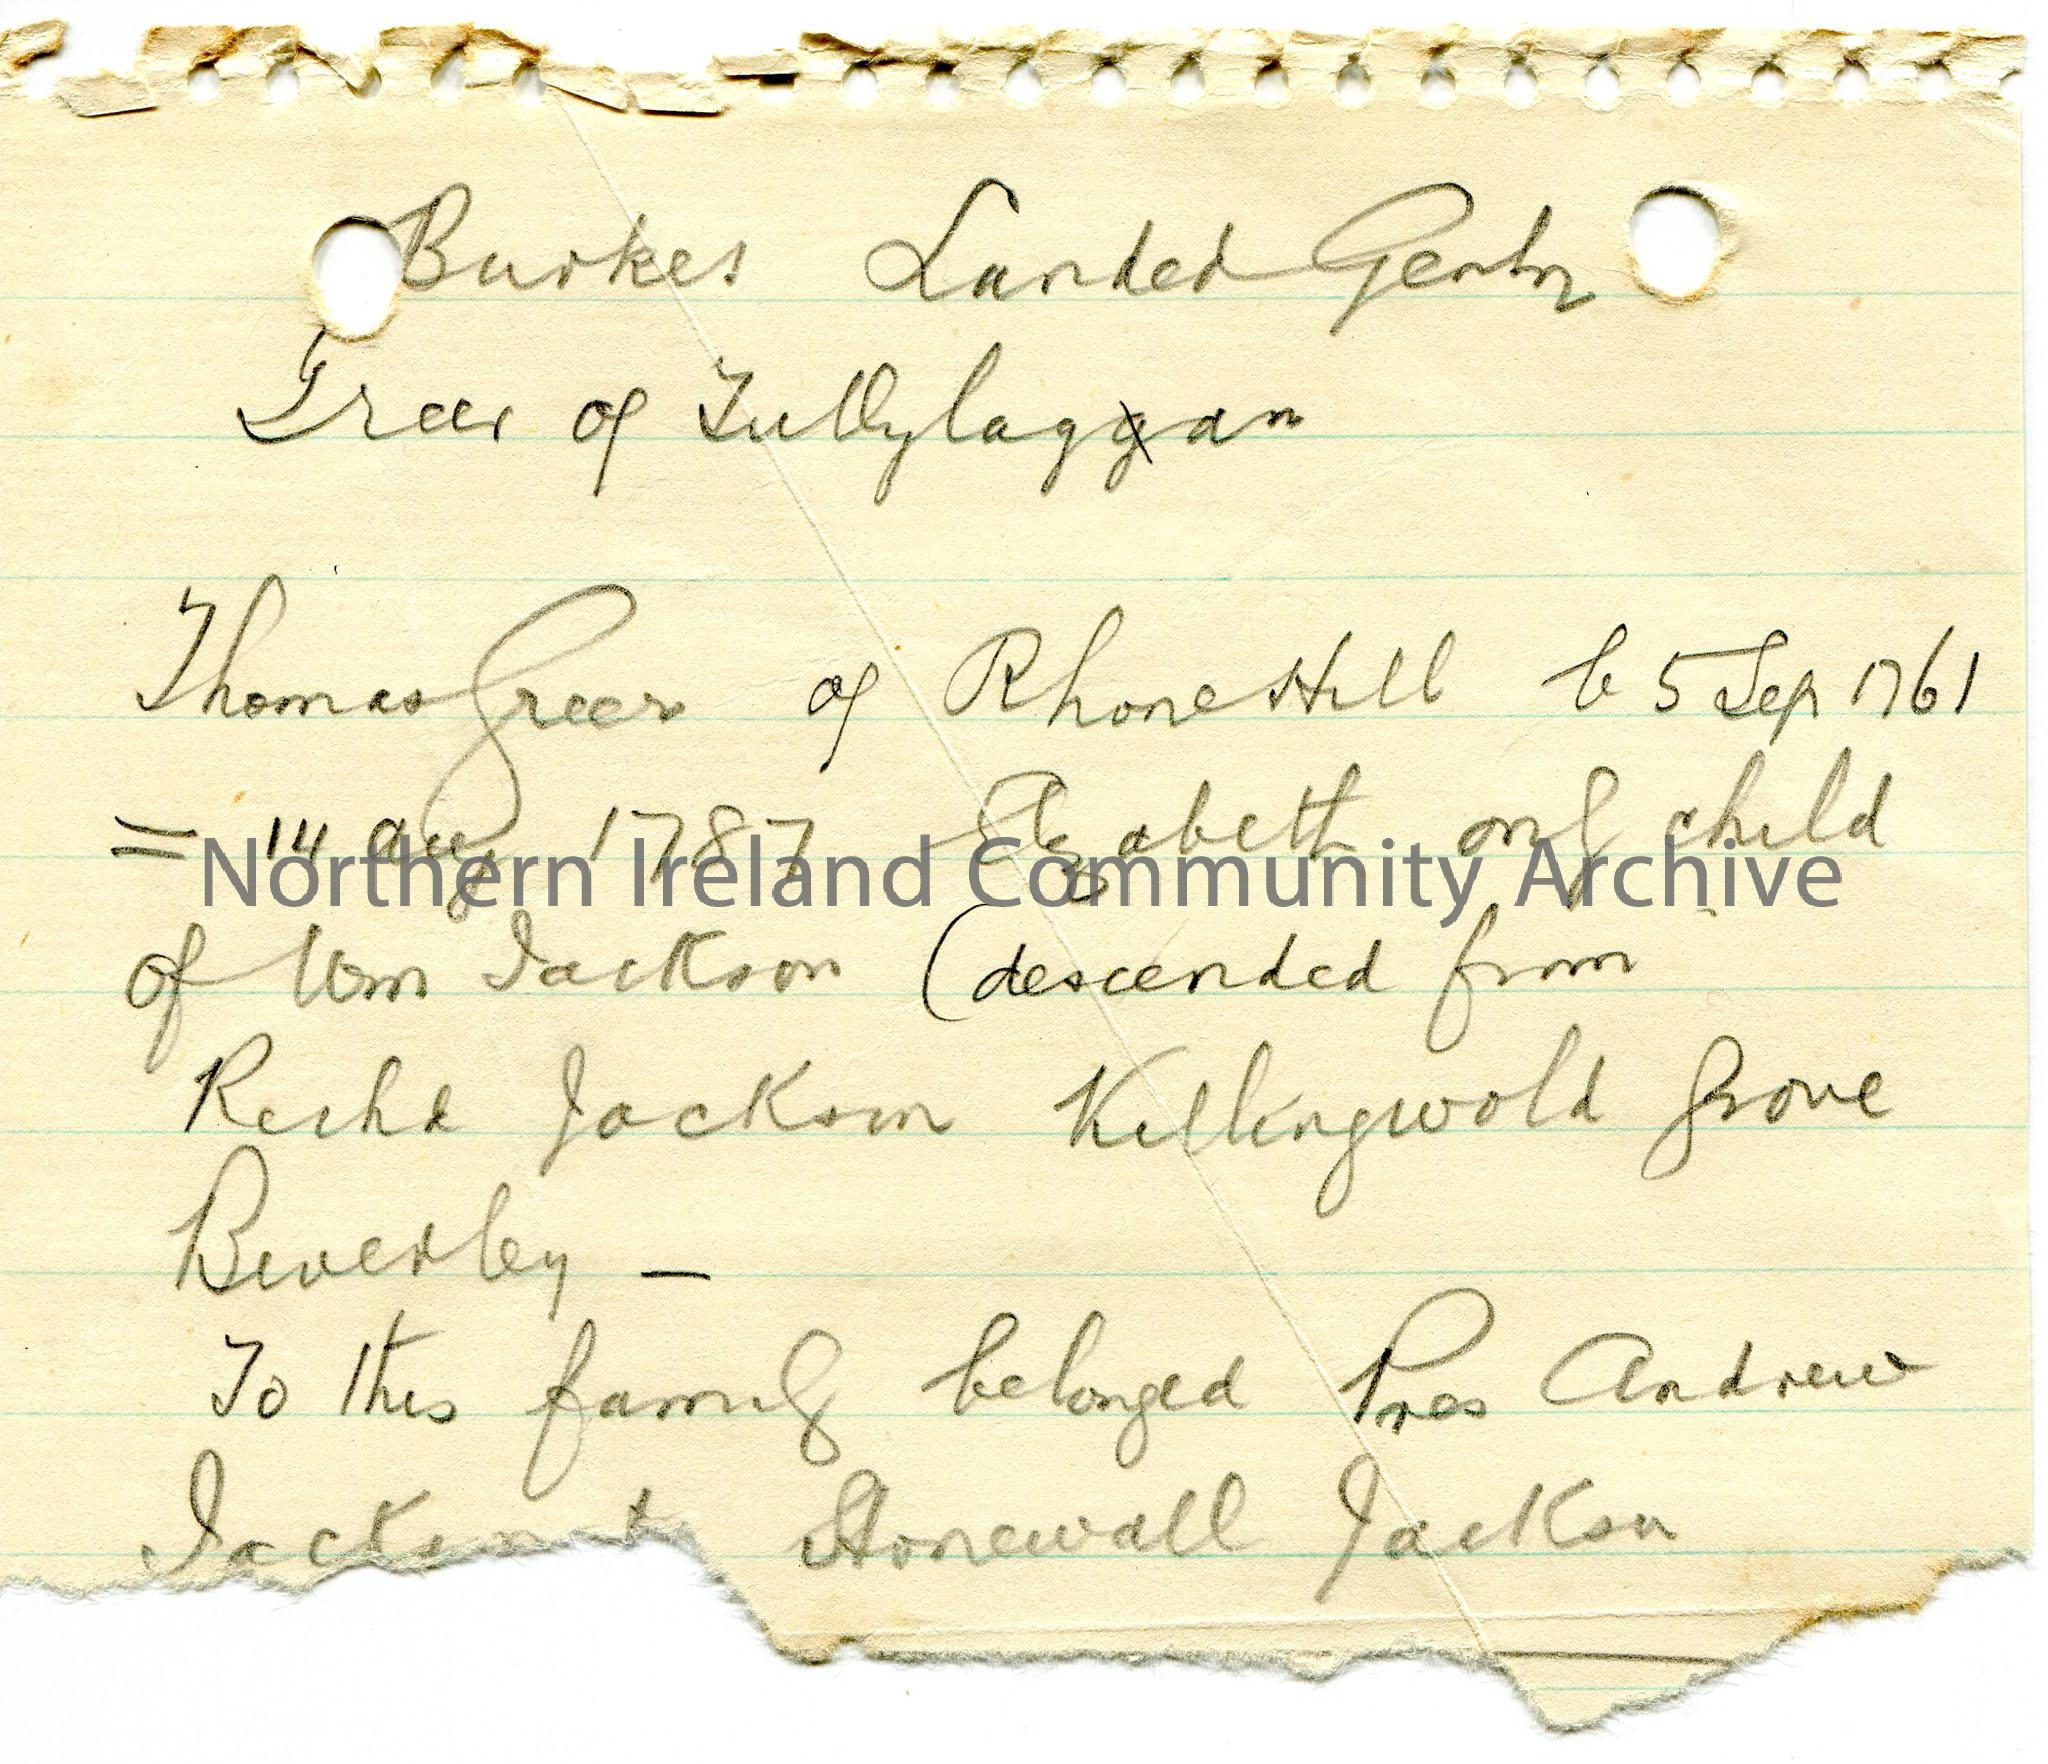 Burkes Landed Gentry
Greer of Tullylaggan
Thomas Greer of Rhone Hill b 5 Sep 1761
= 14 Aug 1787 Elizabeth only child
Northern Ireland Community Archive
of Wm Jackson (descended from
Richd Jackson Killingwold Grove
Beverley —
To this family belonged Pres Andrew
Jackson & Stonewall Jackson